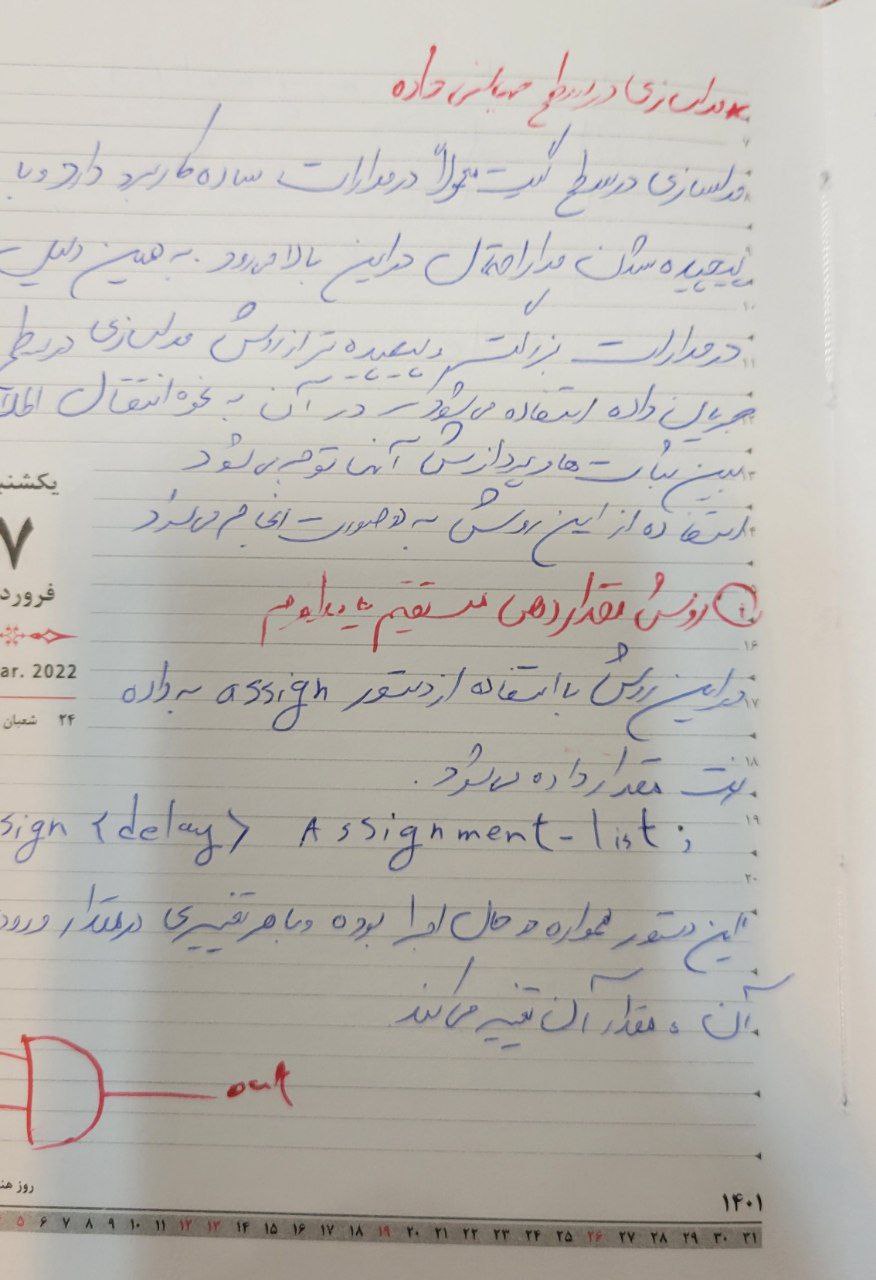 * مدلسازی در سطح جریان داده
مدلسازی در سطح گیت معمولاً در مدارات ساده کاربرد دارد و با
پیچیده شدن مدار احتمال در این بالا می‌رود. به همین دلیل
در مدارات بزرگتر و پیچیده تر از روش مدلسازی در سطح
جریان داده استفاده می‌شود که در آن به نحوه انتقال
بین ثبات ها و پردازش آنها توجه می‌شود
استفاده از این روش به صورت انجام می‌شود
یکشنبه
۷
① روش مقداردهی مستقیم یا مداوم
ar. 2022
۲۴ شعبان
در این روش با استفاده از دستور assign به داده
نت مقدار داده می‌شود.
sign <delay> Assignment-list;
این دستور همواره در حال اجرا بوده و با هر تغییری در مقدار ورود
آن، مقدار آن تغییر می‌کند
out
۱۴۰۱
۵ ۶ ۷ ۸ ۹ ۱۰ ۱۱ ۱۲ ۱۳ ۱۴ ۱۵ ۱۶ ۱۷ ۱۸ ۱۹ ۲۰ ۲۱ ۲۲ ۲۳ ۲۴ ۲۵ ۲۶ ۲۷ ۲۸ ۲۹ ۳۰ ۳۱